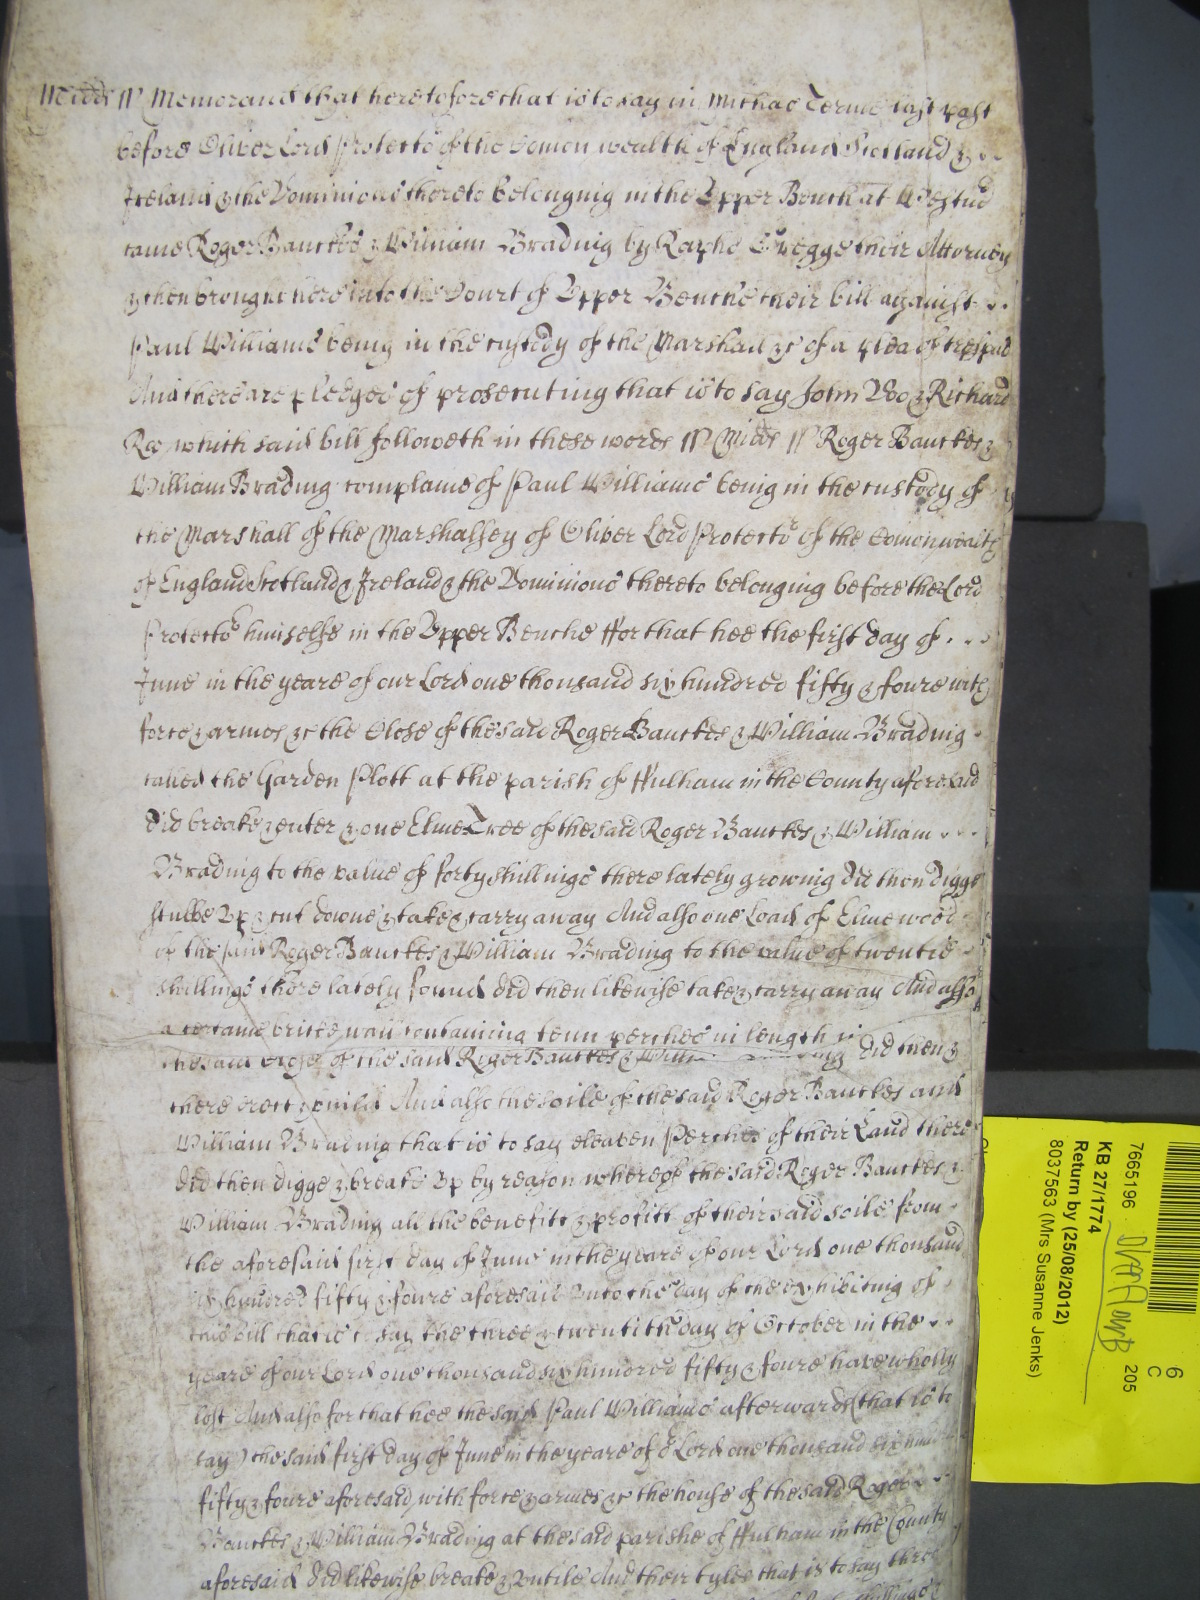 Midds ss Memorand that heretofore that is to say in Michas Terme last past
before Oliver Lord Protector of the Comon wealth of England Scotland &
Ireland & the Dominions thereto belonging in the Upper Bench at Westm
came Roger Banckes & William Brading by Raphe Gregge their Attorney
& then brought here into the Court of Upper Benche their bill against
Paul Williams being in the custody of the Marshall &c of a plea of trespas
And there are pledges of prosecuting that is to say John Doo & Richard
Roo which said bill followeth in these words ss Midds ss Roger Banckes &
William Brading complaine of Paul Williams being in the custody of
the Marshall of the Marshalsey of Oliver Lord Protector of the Comonwealth
of England Scotland & Ireland & the Dominions thereto belonging before the Lord
Protector himselfe in the Upper Benche ffor that hee the first day of
June in the yeare of our Lord one thousand six hundred fifty & foure with
force & armes &c the Close of the said Roger Banckes & William Brading
called the Garden Plott at the parish of ffulham in the County aforesaid
did breake & enter & one Elme Tree of the said Roger Banckes & William
Brading to the value of forty shillings there lately growing did then digge
stubbe up & cut downe & take & carry away And also one Load of Elme wood
of the said Roger Banckes & William Brading to the value of twentie
shillings there lately found did then likewise take & carry away And also
a certaine bricke wall containing tenn perches in length in
the said close of the said Roger Banckes & Willm Brading did then &
there erect & build And also the soile of the said Roger Banckes and
William Brading that is to say eleaven Perches of their Land there
did then digge & breake up by reason whereof the said Roger Banckes &
William Brading all the benefitt & profitt of their said soile from
the aforesaid first day of June in the yeare of our Lord one thousand
six hundred fifty & foure aforesaid unto the day of the exhibiting of
this bill that is to say the three & twentith day of October in the
yeare of our Lord one thousand six hundred fifty & foure have wholly
lost And also for that hee the said Paul Williams afterwards (that is to
say) the said first day of June in the yeare of or Lord one thousand six
fifty & foure aforesaid with force & armes &c the house of the said Roger
Banckes & William Brading at the said parishe of ffulham in the County
aforesaid did likewise breake & untile And their tyles that is to say three
7665196
KB 27/1774
Return by (25/08/2012)
8037563 (Mrs Susanne Jenks)
6
C
205